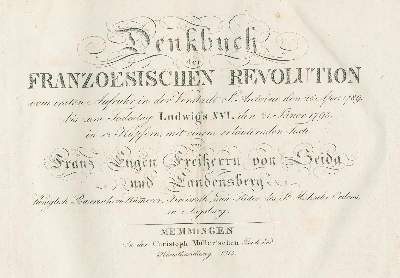 Denkbuch
der
FRANZOESISCHEN REVOLUTION
vom ersten Aufruhr in der Vorstadt St. Antoine den 28. April 1789.
bis zum Todestag Ludwigs XVI. den 21. Jäner 1793.
in 42 Kupfern, mit einem erläuternden Texte
Franz Eugen Freiherrn von Seida
und Landensberg
Königlich Kämmerer, des St. Ordens,
in Augsburg.
MEMMINGEN
In der Christoph Müller'schen Buch und
Kunsthandlung